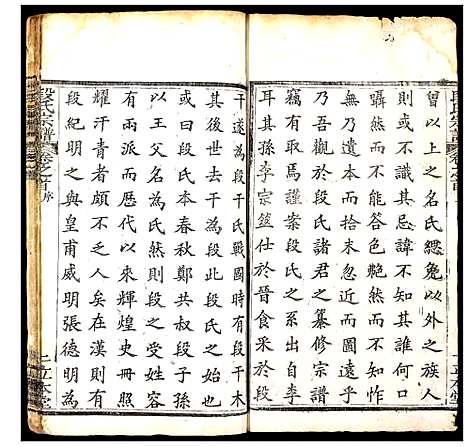 曾以上之名氏緦免以外之族人
則或不識其忌諱不知其名字囁
囁然而不能答色艴然而不知怍
無乃遺本而拾末忽近而圖遠乎
乃吾觀於段氏諸君之纂修宗譜
竊有取焉蓋段氏之系出自李
耳其孫李宗筮仕於晉食采於段
干遂為段干氏戰國時有段干木
其後世去干為段此段氏之始也
或曰段氏本春秋鄭共叔段子孫
以王父名為氏然則段之受姓容
有兩派與由漢以來輝煌史冊照
耀汗青者頗不乏人矣在漢則有
段紀明之與皇甫威明張德明為
段氏宗譜 卷之首 序
七 立本堂